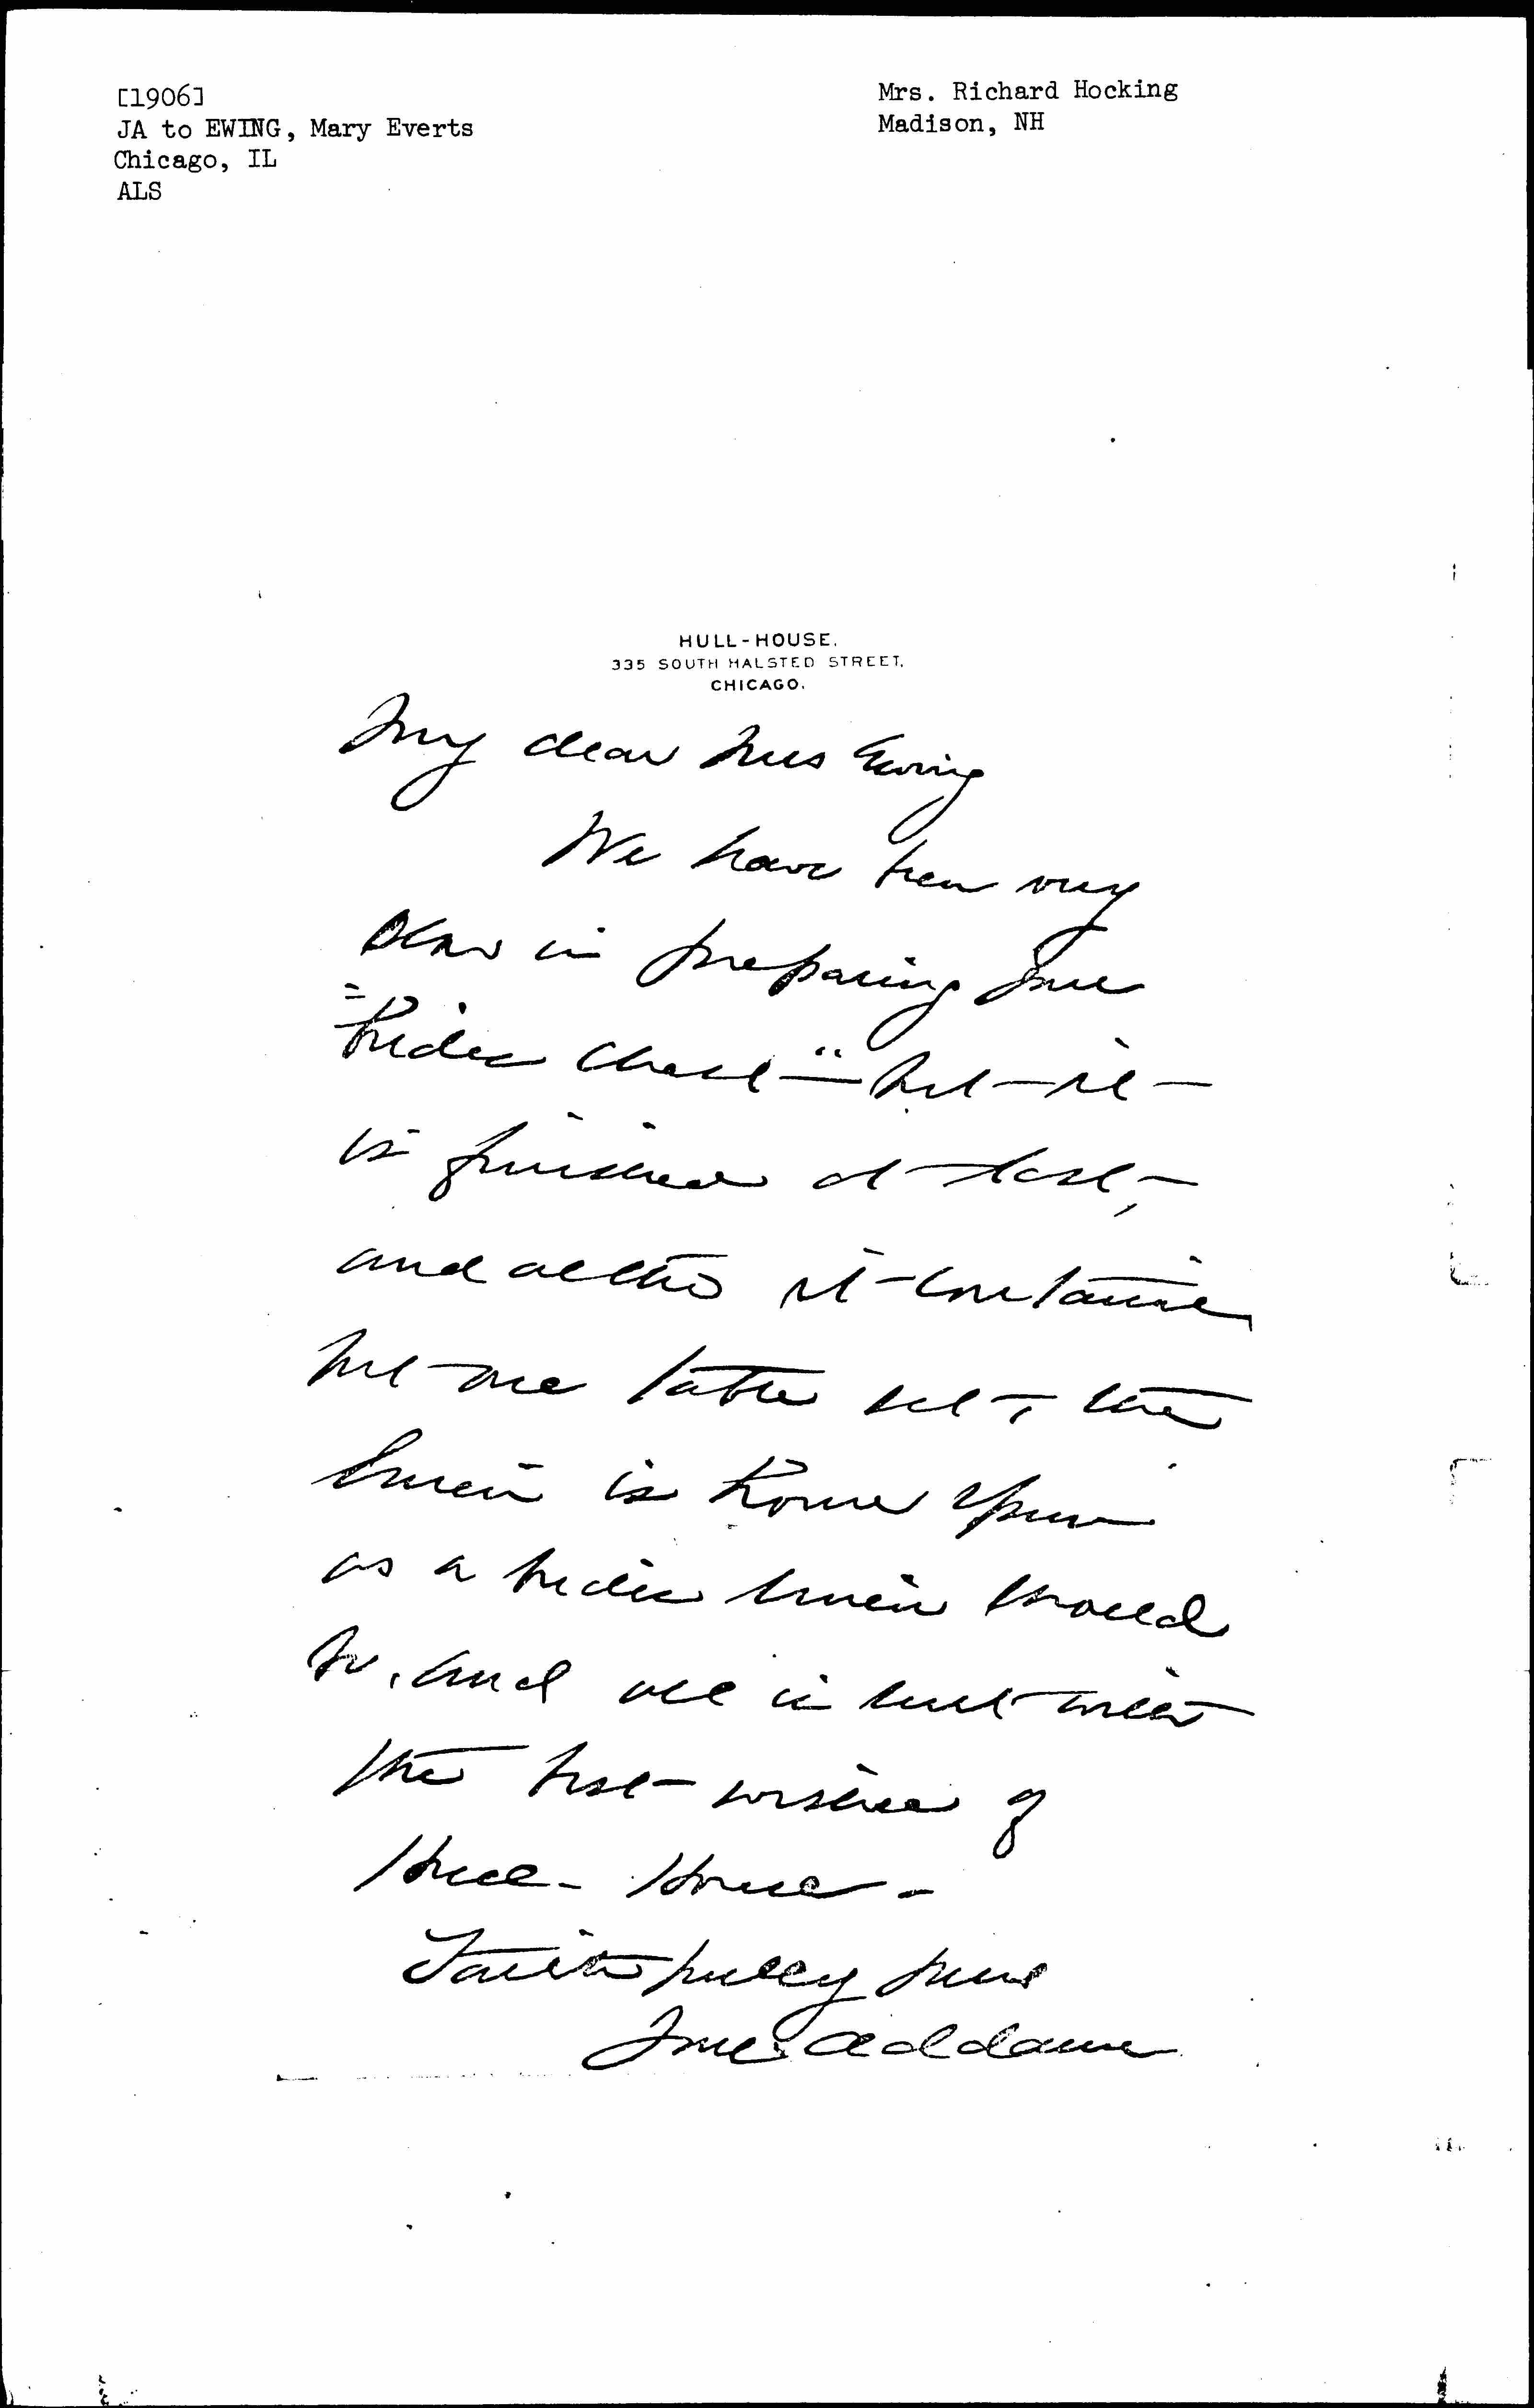 [1906]
JA to EWING, Mary Everts
Chicago, IL
ALS
Mrs. Richard Hocking
Madison, NH
HULL-HOUSE.
335 SOUTH HALSTED STREET,
CHICAGO.
My dear Mrs Ewing
We have been very
slow in preparing your
"bride's chest" but it
is finished at last,
and altho it contains
but one table set, the
linen is home spun
as a bride's linen should
be, and all is sent with
the best wishes of
Hull-House.
Faithfully yours
Jane Addams